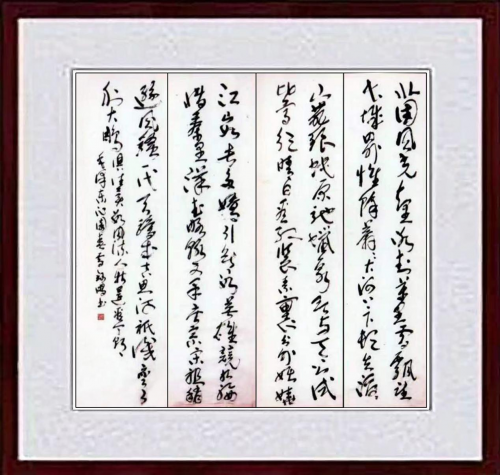 北国風光千里冰封万里雪飘望
长城内外惟餘莽莽大河上下顿失滔
滔山舞银蛇原驰蜡象欲与天公试
比高须晴日看红装素裹分外妖娆
江山如此多娇引无数英雄竞折腰
惜秦皇汉武略输文采唐宗宋祖稍
逊风骚一代天骄成吉思汗祇識弯弓
射大雕俱往矣数风流人物还看今朝
毛泽东沁园春雪 书